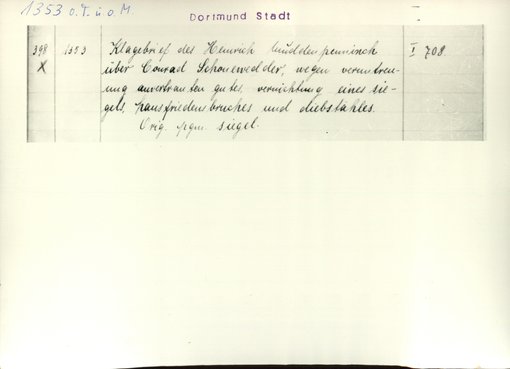 1353 o.T. u. o. M.
Dortmund Stadt
398 1353 Klagebrief des Heinrich Buddenpennisch I 708
X über Conrad Schonewedder, wegen veruntreu-
ung anvertrauten gutes, vernichtung eines sie-
gels, hausfriedensbruches und diebstahles.
Orig. pgm. siegel.